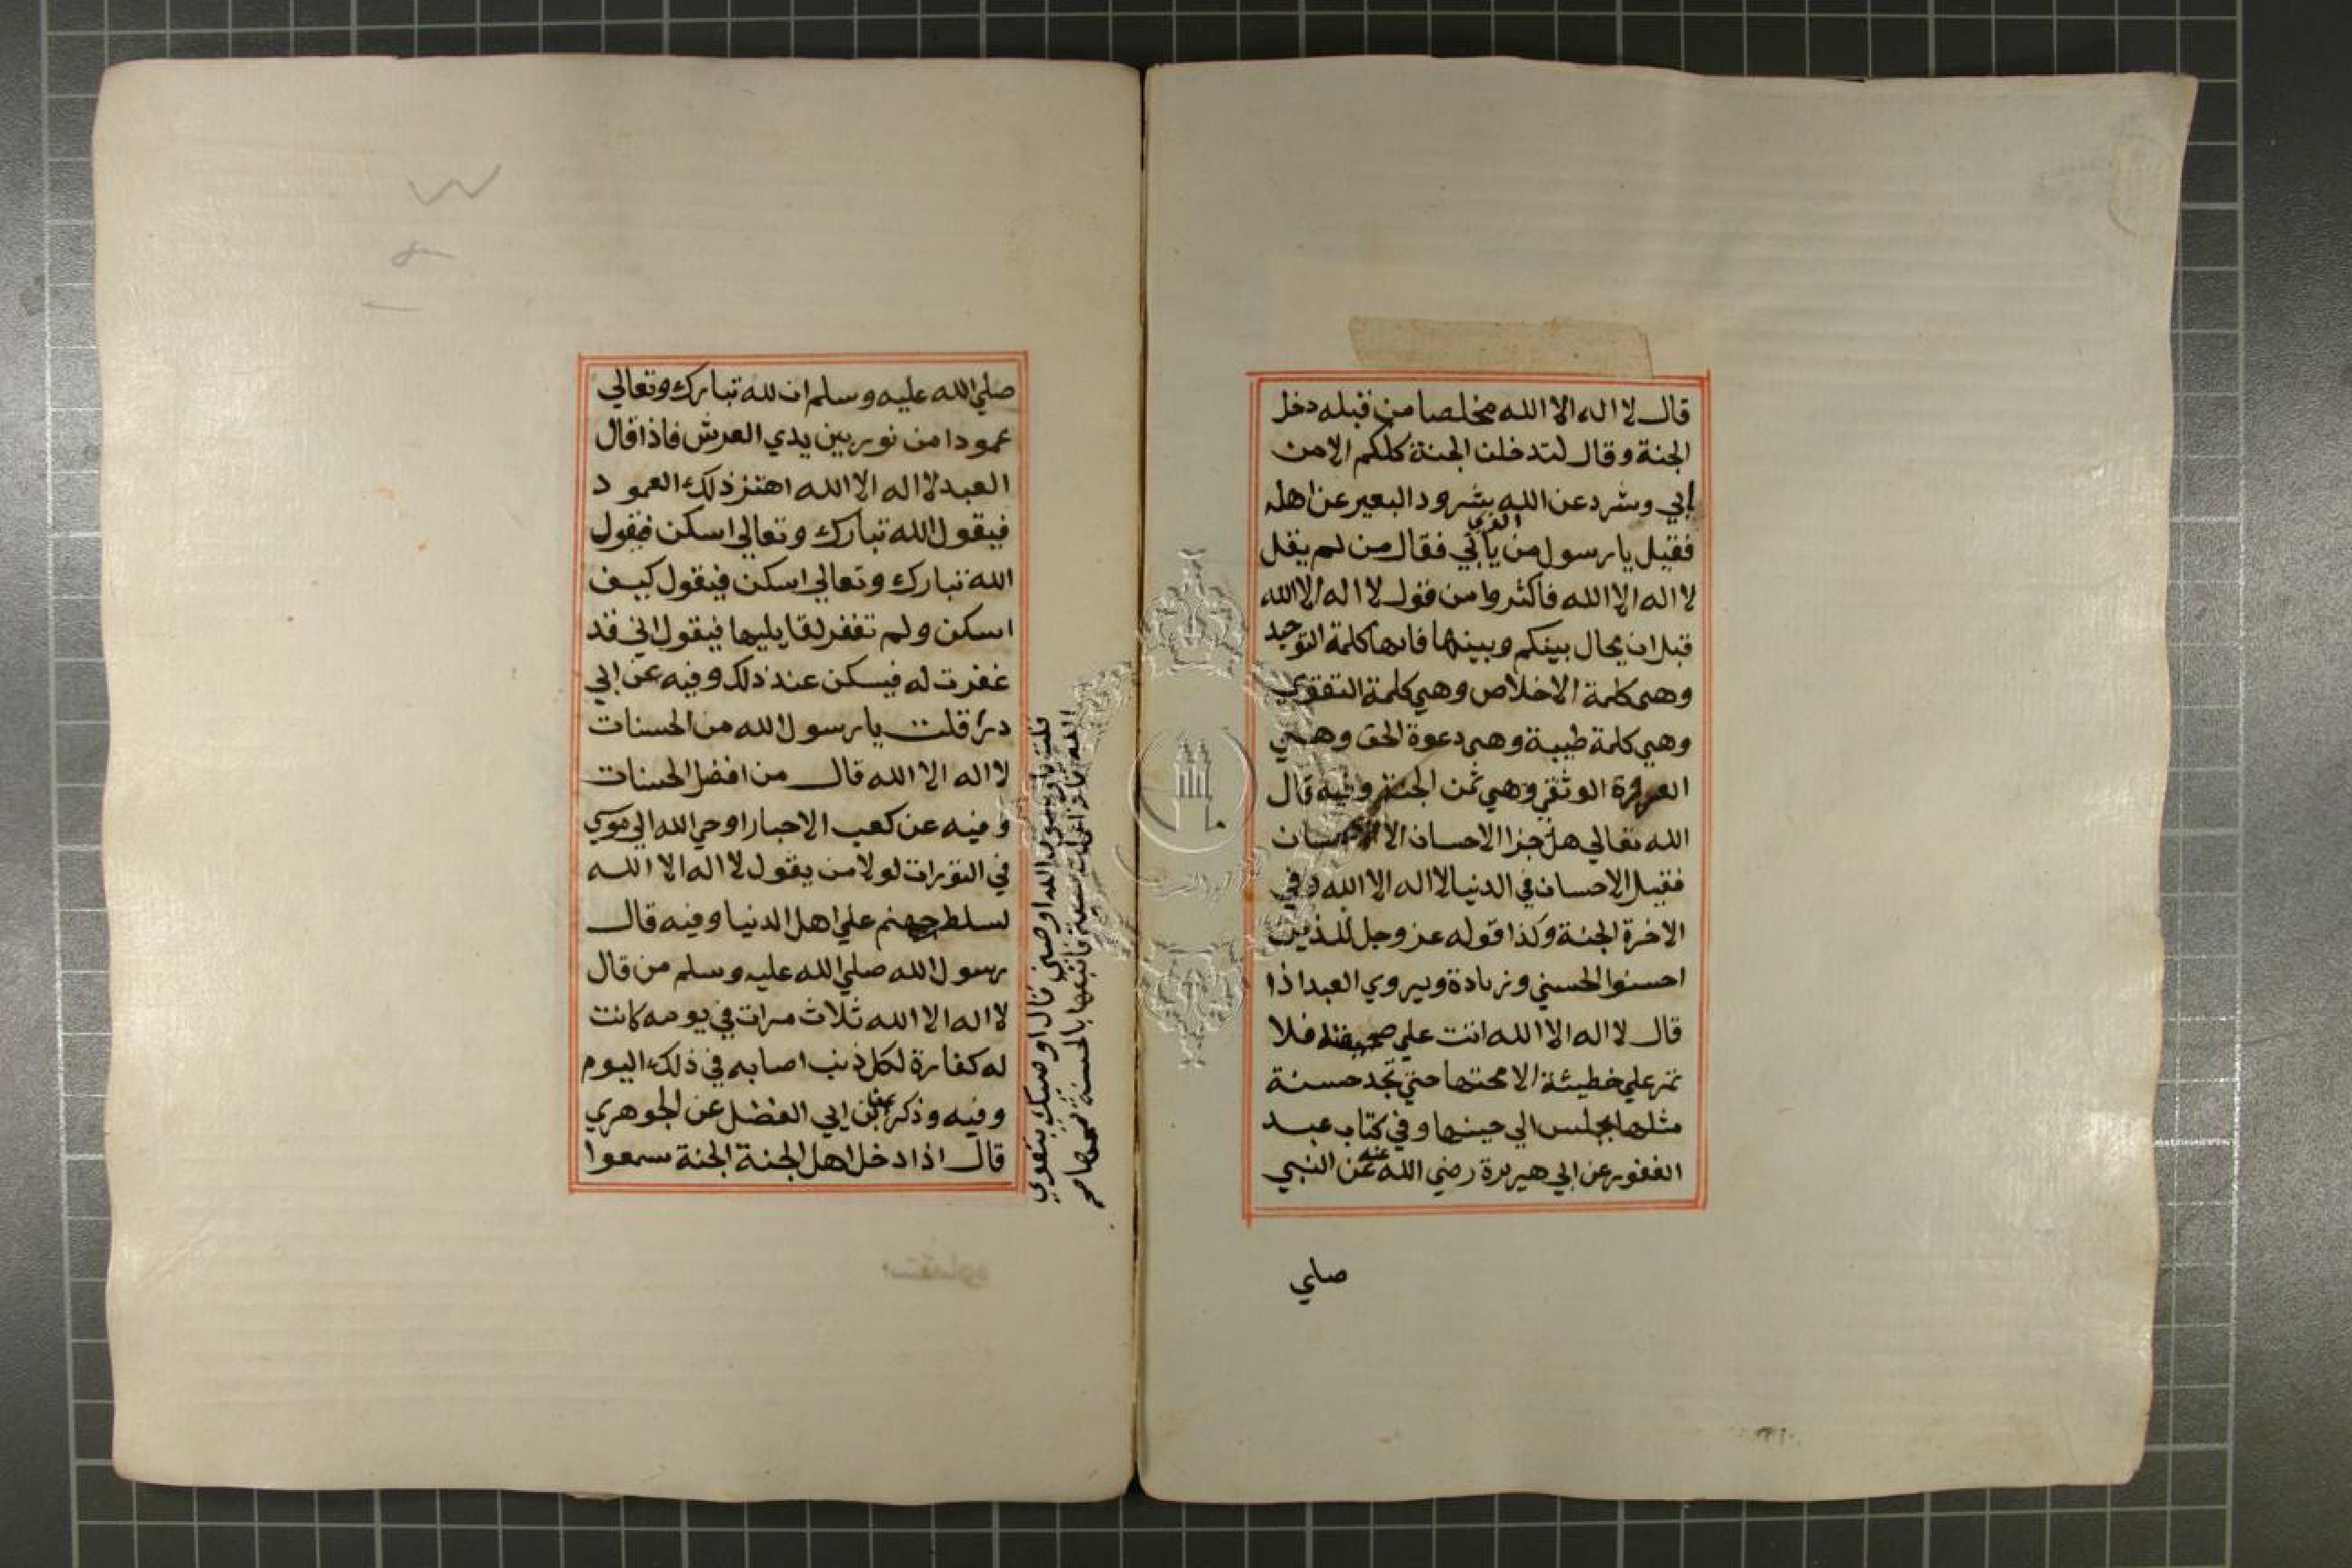 قال لا اله الا الله مخلصا من قبله دخل
الجنة وقال لتدخلن الجنة كلكم الا من
ابي وشرد عن الله بشرود البعير عن اهله
فقيل يا رسول من يأبي فقال من لم يقل
لا اله الا الله فاكثروا من قول لا اله الا الله
قبل ان يحال بينكم وبينها فانها كلمة التوحيد
وهي كلمة الاخلاص وهي كلمة التقوي
وهي كلمة طيبة وهي دعوة الحق وهي
العروة الوثقي وهي ثمن الجنة وفيه قال
الله تعالي هل جزا الاحسان الا الاحسان
فقيل الاحسان في الدنيا لا اله الا الله وفي
الاخرة الجنة وكذا قوله عز وجل للذين
احسنوا الحسني وزيادة ويروي العبد اذا
قال لا اله الا الله اتت علي صحيفته فلا
تمر علي خطيئة الا محتها حتي تجد حسنة
مثلها فجلس الي حينها وفي كتاب عبد
الغفور عن ابي هريرة رضي الله عنه عن النبي
صلي
صلي الله عليه وسلم ان لله تبارك وتعالي
عمودا من نور بين يدي العرش فاذا قال
العبد لا اله الا الله اهتز ذلك العمود
فيقول الله تبارك وتعالي اسكن فيقول
الله تبارك وتعالي اسكن فيقول كيف
اسكن ولم تغفر لقايليها فيقول اني قد
غفرت له فيسكن عند ذلك وفيه عن ابي
ذر قلت يا رسول الله من الحسنات
لا اله الا الله قال من افضل الحسنات
وفيه عن كعب الاحبار اوحي الله الي موسي
في التورات لولا من يقول لا اله الا الله
لسلط جهنم علي اهل الدنيا وفيه قال
رسول الله صلي الله عليه وسلم من قال
لا اله الا الله ثلاث مرات في يومه كانت
له كفارة لكل ذنب اصابه في ذلك اليوم
وفيه وذكر عن ابن ابي الفضل عن الجوهري
قال اذا دخل اهل الجنة الجنة سمعوا
قلت يا رسول الله اوصني قال اوصيك بتقوي
الله فاذا عملت سيئة فاتبعها بالحسنة تمحها صح